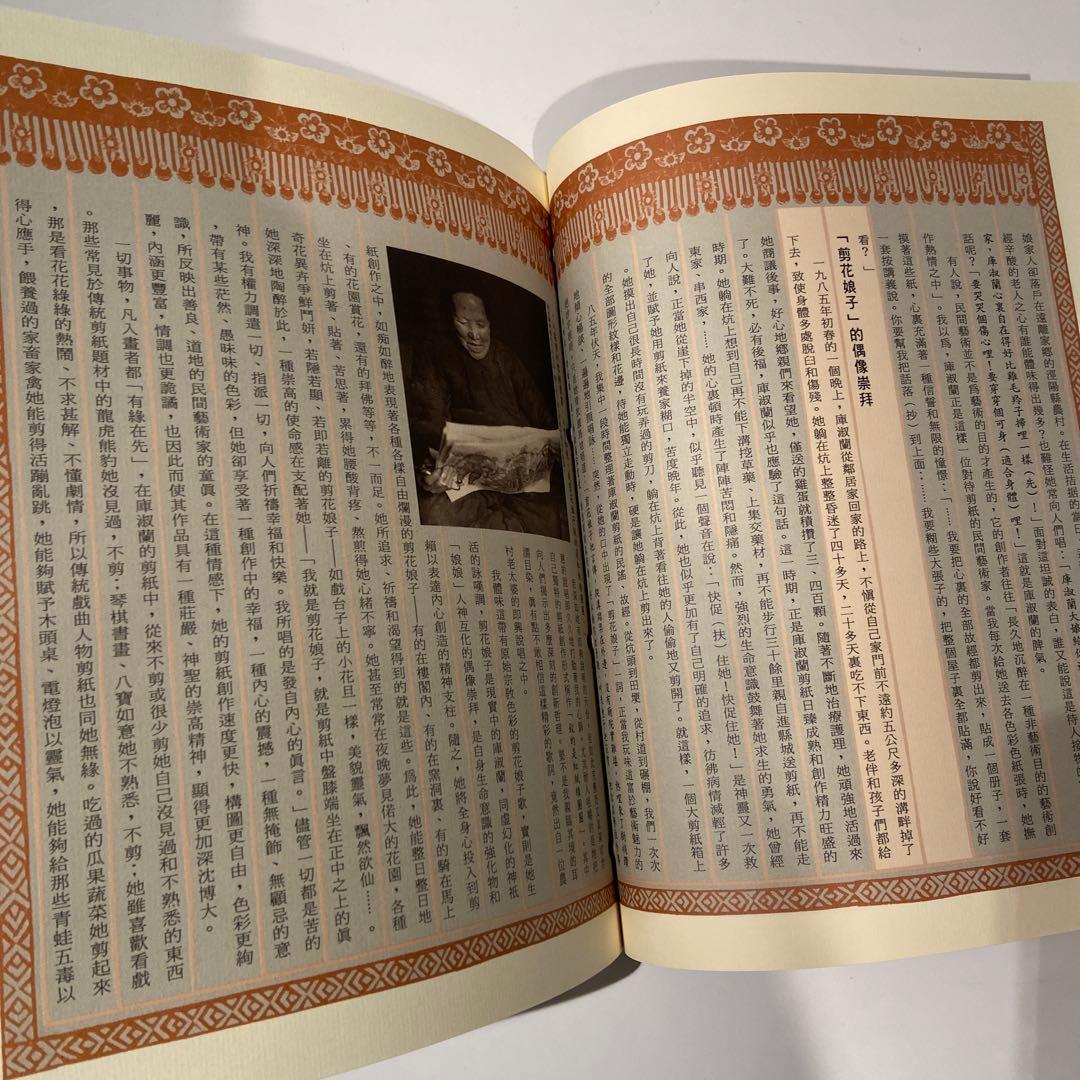 娘家人卻落戶在遠離家鄉的徑陽縣農村。在生活拮据的當
經辛酸的老人之心有誰能體味得出幾多?也難怪她常向人們唱:
家,庫淑蘭心裏自在得好比雞毛羚子掃哩一樣(先)!」面對這坦誠的表白,誰又能說這
話呢?「要哭哭個傷心哩!要穿穿個可身(適合身體)哩!」這就是庫淑蘭的脾氣。
有人說,民間藝術並不是爲藝術的目的才產生的,它的創作者往往「長久地沉醉在一種非藝術目的的藝術創
作熱情之中」。我以爲,庫淑蘭正是這樣一位對待剪紙的民間藝術家。當我每次給她送去各色彩色紙張時,她撫
摸著這些紙,心裏充滿著一種信誓和無限的憧憬:「……我要把心裏的全部故經都剪出來,貼成一個册子,一套
一套按講義說。你要幫我把話落(抄)到上面:……我要糊些大張子的,把整個屋子裏全都貼滿,你說好看不好
看?」
「剪花娘子」的偶像崇拜
一九八五年初春的一個晚上,庫淑蘭從鄰居家回家的路上,不慎從自己家門前不遠約五公尺多深的溝畔掉了
下去,致使身體多處脫臼和傷殘。她躺在炕上整整昏迷了四十多天,二十多天裏吃不下東西。老伴和孩子們都給
她商議後事,好心地鄉親們來看望她,僅送的雞蛋就積攢了三、四百顆。隨著不斷地治療護理,她頑強地活過來
了。大難不死,必有後福,庫淑蘭似乎也應驗了這句話。這一時期,正是庫淑蘭剪紙日臻成熟和創作精力旺盛的
時期。她躺在炕上想到自己再不能下溝挖草藥、上集交藥材,再不能步行三十餘里親自進縣城送剪紙,再不能走
東家、串西家,……她的心裏頓時產生了陣陣苦悶和隱痛。然而,強烈的生命意識鼓舞著她求生的勇氣,她曾經
向人說,正當她從崖下掉的半空中,似乎聽見一個聲音在說:「快促(扶)住她!快促住她!」是神靈又一次救
了她,並賦予她用剪紙來養家糊口,苦度晚年。從此,她也似乎更加有了自己明確的追求,彷彿病情減輕了許多
。她摸出自己很長時間沒有玩弄過的剪刀,躺在炕上背著看往她的人偷偷地又剪開了。就這樣,一個大剪紙箱上
的全部圖形紋樣和花邊,待她能獨立走動時,硬是讓她躺在炕上剪出來了。
八五年伏天,我集中一段時間整理著庫淑蘭剪紙的民謠、故經。從炕頭到田壟,從村道到碾棚,我們一次次
村老太婆的即興說唱之中。
我體味這帶有原始宗教色彩的剪花娘子歌,實則是她生
活的詠嘆調,剪花娘子是現實中的庫淑蘭,同虛幻化的神祇
「娘娘」人神互化的偶像崇拜,是自身生命意識的強化物和
賴以表達內心創造的精神支柱。隨之,她將全身心投入到剪
紙創作之中,如痴如醉地表現著各種各樣自由爛漫的剪花娘子——有的在樓閣內、有的在窯洞裏、有的騎在馬上
、有的花園賞花,還有的拜佛等等,不一而足。她所追求、祈禱和渴望得到的就是這些。爲此,她能整日整日地
坐在炕上剪著、貼著、苦思著,累得她腰酸背疼、熬煎得她心緒不寧。她甚至常常在夜晚夢見偌大的花園,各種
奇花異卉爭鮮鬥妍,若隱若顯、若即若離的剪花娘子——如戲台子上的小花旦一樣,美貌靈氣,飄然欲仙……。
她深深地陶醉於此,一種崇高的使命感在支配著她——「我就是剪花娘子,就是剪紙中盤膝端坐在正中之上的眞
神。我有權力調遣一切、指派一切,向人們祈禱幸福和快樂。我所唱的是發自內心的眞言。」儘管一切都是苦的
,帶有某些茫然、愚昧味的色彩,但她卻享受著一種創作中的幸福,一種內心的震撼,一種無掩飾、無顧忌的意
識,所反映出善良、道地的民間藝術家的童眞。在這種情感下,她的剪紙創作速度更快,構圖更自由,色彩更絢
麗,內涵更豐富,情調也更詭譎,也因此而使其作品具有一種莊嚴、神聖的崇高精神,顯得更加深沈博大。
一切事物,凡入畫者都「有緣在先」,在庫淑蘭的剪紙中,從來不剪或很少剪她自己沒見過和不熟悉的東西
。那些常見於傳統剪紙題材中的龍虎熊豹她沒見過,不剪:琴棋書畫、八寶如意她不熟悉,不剪:她雖喜歡看戲
,那是看花花綠綠的熱鬧、不求甚解、不懂劇情,所以傳統戲曲人物剪紙也同她無緣。吃過的瓜果蔬菜她剪起來
得心應手,餵養過的家畜家禽她能剪得活蹦亂跳,她能夠賦予木頭桌、電燈泡以靈氣,她能夠給那些青蛙五毒以